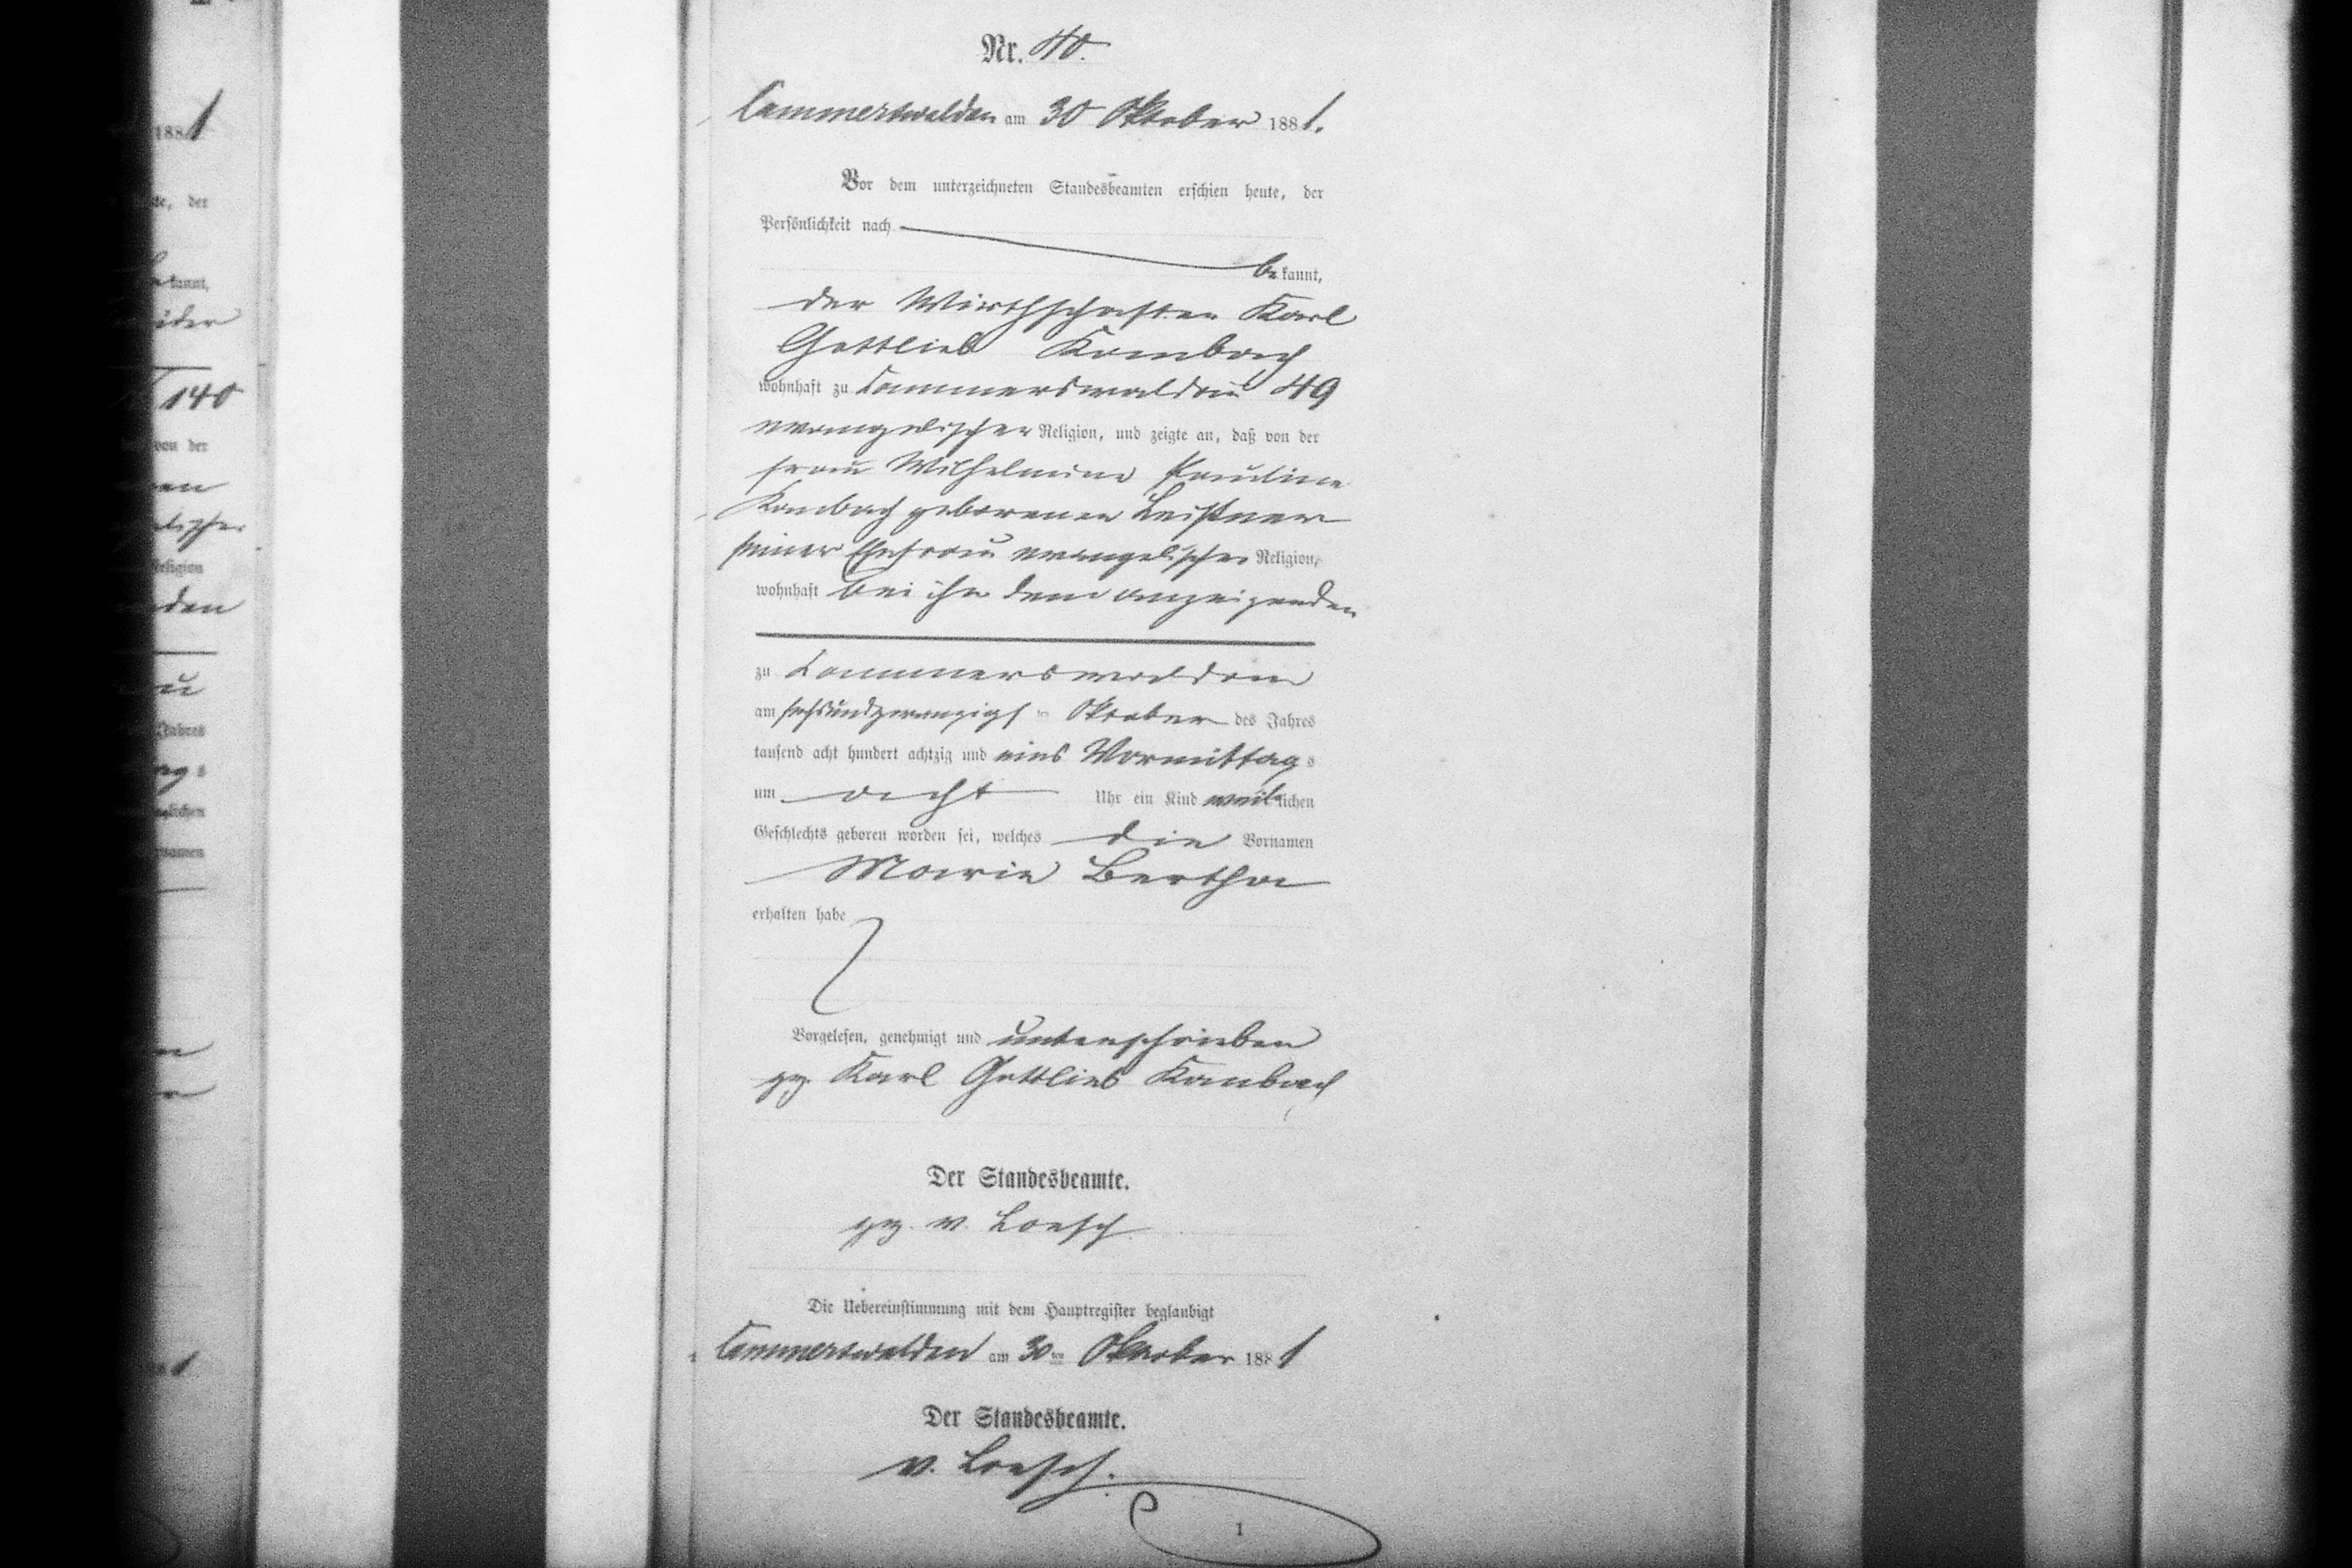 Nr. 40.
Cammerswaldau am 30 Oktober 1881.
Vor dem unterzeichneten Standesbeamten erschien heute, der
Persönlichkeit nach
bekannt,
der Wirthschafter Karl
Gottlieb Kambach
wohnhaft zu Cammerswaldau 49
evangelischer Religion, und zeigte an, daß von der
Frau Wilhelmine Pauline
Kambach geborenen Leistner
seiner Ehefrau evangelischer Religion,
wohnhaft bei ihm dem Anzeigenden
zu Cammerswaldau
am sechsundzwanzigsten Oktober des Jahres
tausend acht hundert achtzig und eins Vormittags
um acht Uhr ein Kind weiblichen
Geschlechts geboren worden sei, welches die Vornamen
Marie Bertha
erhalten habe
Vorgelesen, genehmigt und unterschrieben
gez. Karl Gottlieb Kambach
Der Standesbeamte.
gez. v. Loesch
Die Uebereinstimmung mit dem Hauptregister beglaubigt
Cammerswaldau am 30ten Oktober 1881
Der Standesbeamte.
v. Loesch.
1
1881
der
kannt,
140
von der
Religion
Jahres
lichen